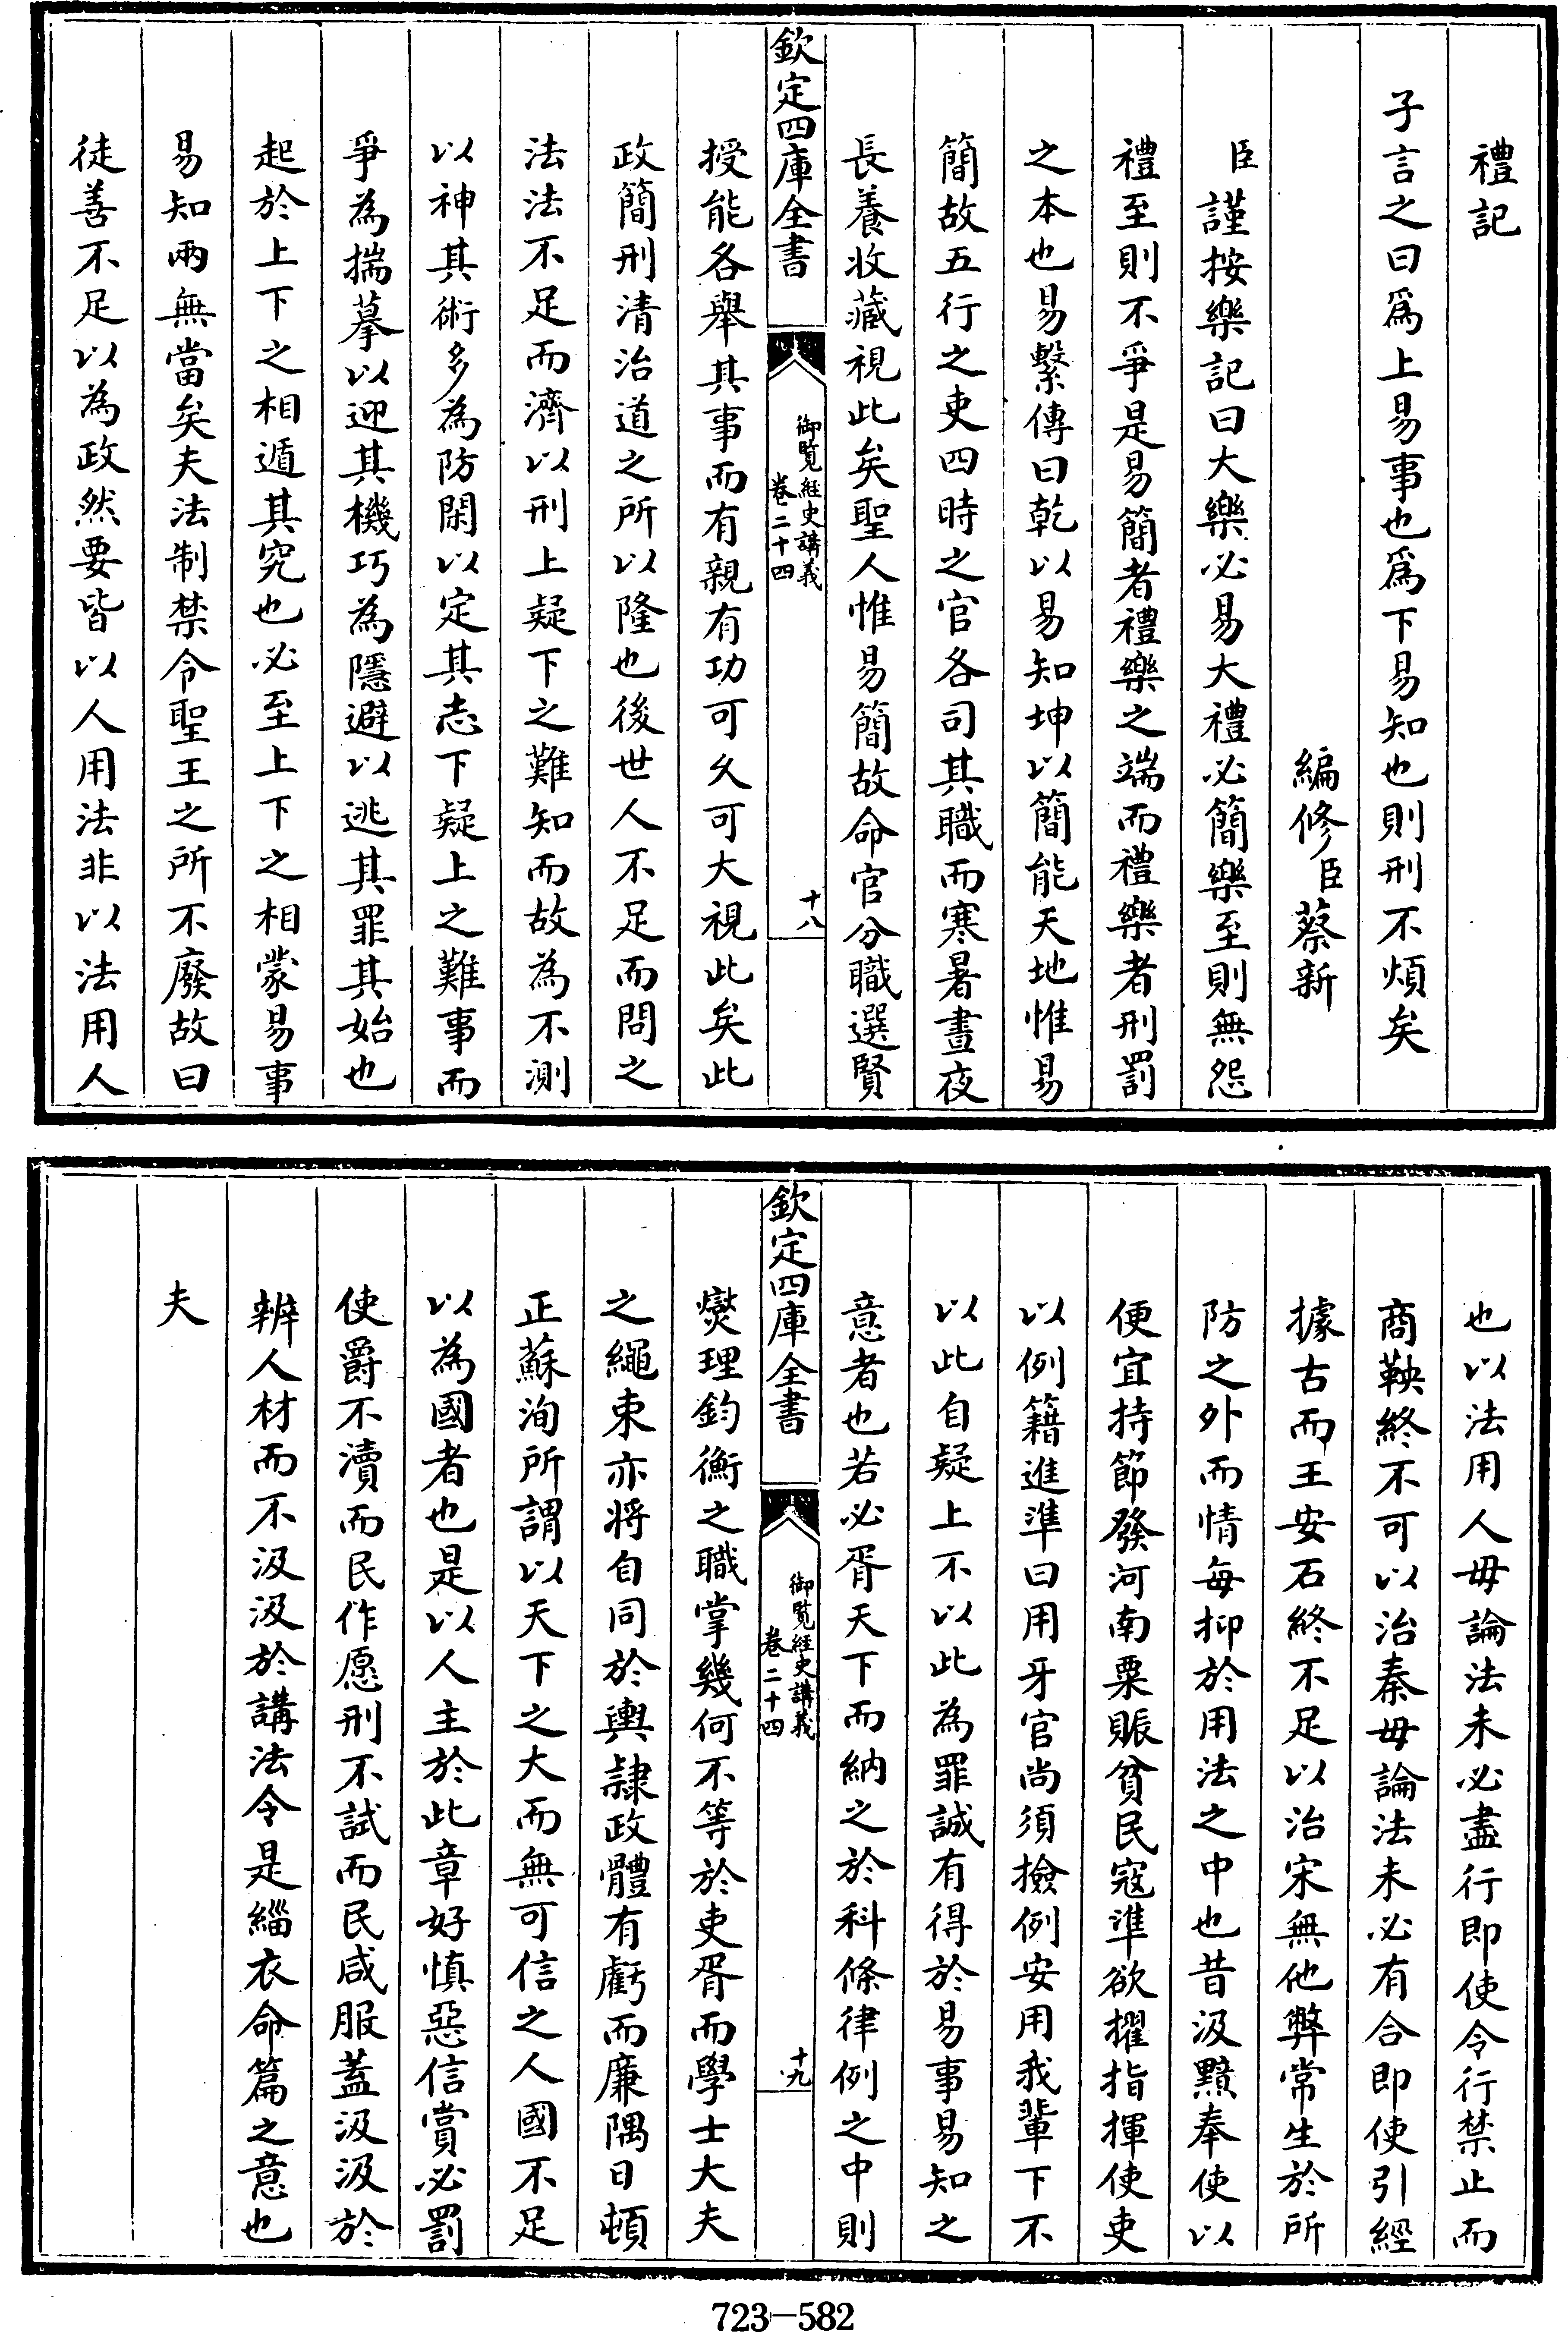 禮記
子言之曰爲上易事也爲下易知也則刑不煩矣
編修臣蔡新
臣謹按樂記曰大樂必易大禮必簡樂至則無怨
禮至則不爭是易簡者禮樂之端而禮樂者刑罰
之本也易繫傳曰乾以易知坤以簡能天地惟易
簡故五行之吏四時之官各司其職而寒暑晝夜
長養收藏視此矣聖人惟易簡故命官分職選賢
欽定四庫全書
御覽經史講義
卷二十四
十八
授能各舉其事而有親有功可久可大視此矣此
政簡刑清治道之所以隆也後世人不足而問之
法法不足而濟以刑上疑下之難知而故為不測
以神其術多為防閑以定其志下疑上之難事而
爭為揣摹以迎其機巧為隱避以逃其罪其始也
起於上下之相遁其究也必至上下之相蒙易事
易知兩無當矣夫法制禁令聖王之所不廢故曰
徒善不足以為政然要皆以人用法非以法用人
也以法用人毋論法未必盡行即使令行禁止而
商鞅終不可以治秦毋論法未必有合即使引經
據古而王安石終不足以治宋無他弊常生於所
防之外而情每抑於用法之中也昔汲黯奉使以
便宜持節發河南粟賑貧民寇準欲擢指揮使吏
以例籍進準曰用牙官尚須撿例安用我輩下不
以此自疑上不以此為罪誠有得於易事易知之
意者也若必胥天下而納之於科條律例之中則
欽定四庫全書
御覽經史講義
卷二十四
十九
爕理鈞衡之職掌幾何不等於吏胥而學士大夫
之繩束亦將自同於輿隷政體有虧而廉隅日頓
正蘇洵所謂以天下之大而無可信之人國不足
以為國者也是以人主於此章好慎惡信賞必罰
使爵不瀆而民作愿刑不試而民咸服蓋汲汲於
辨人材而不汲汲於講法令是緇衣命篇之意也
夫
723-582